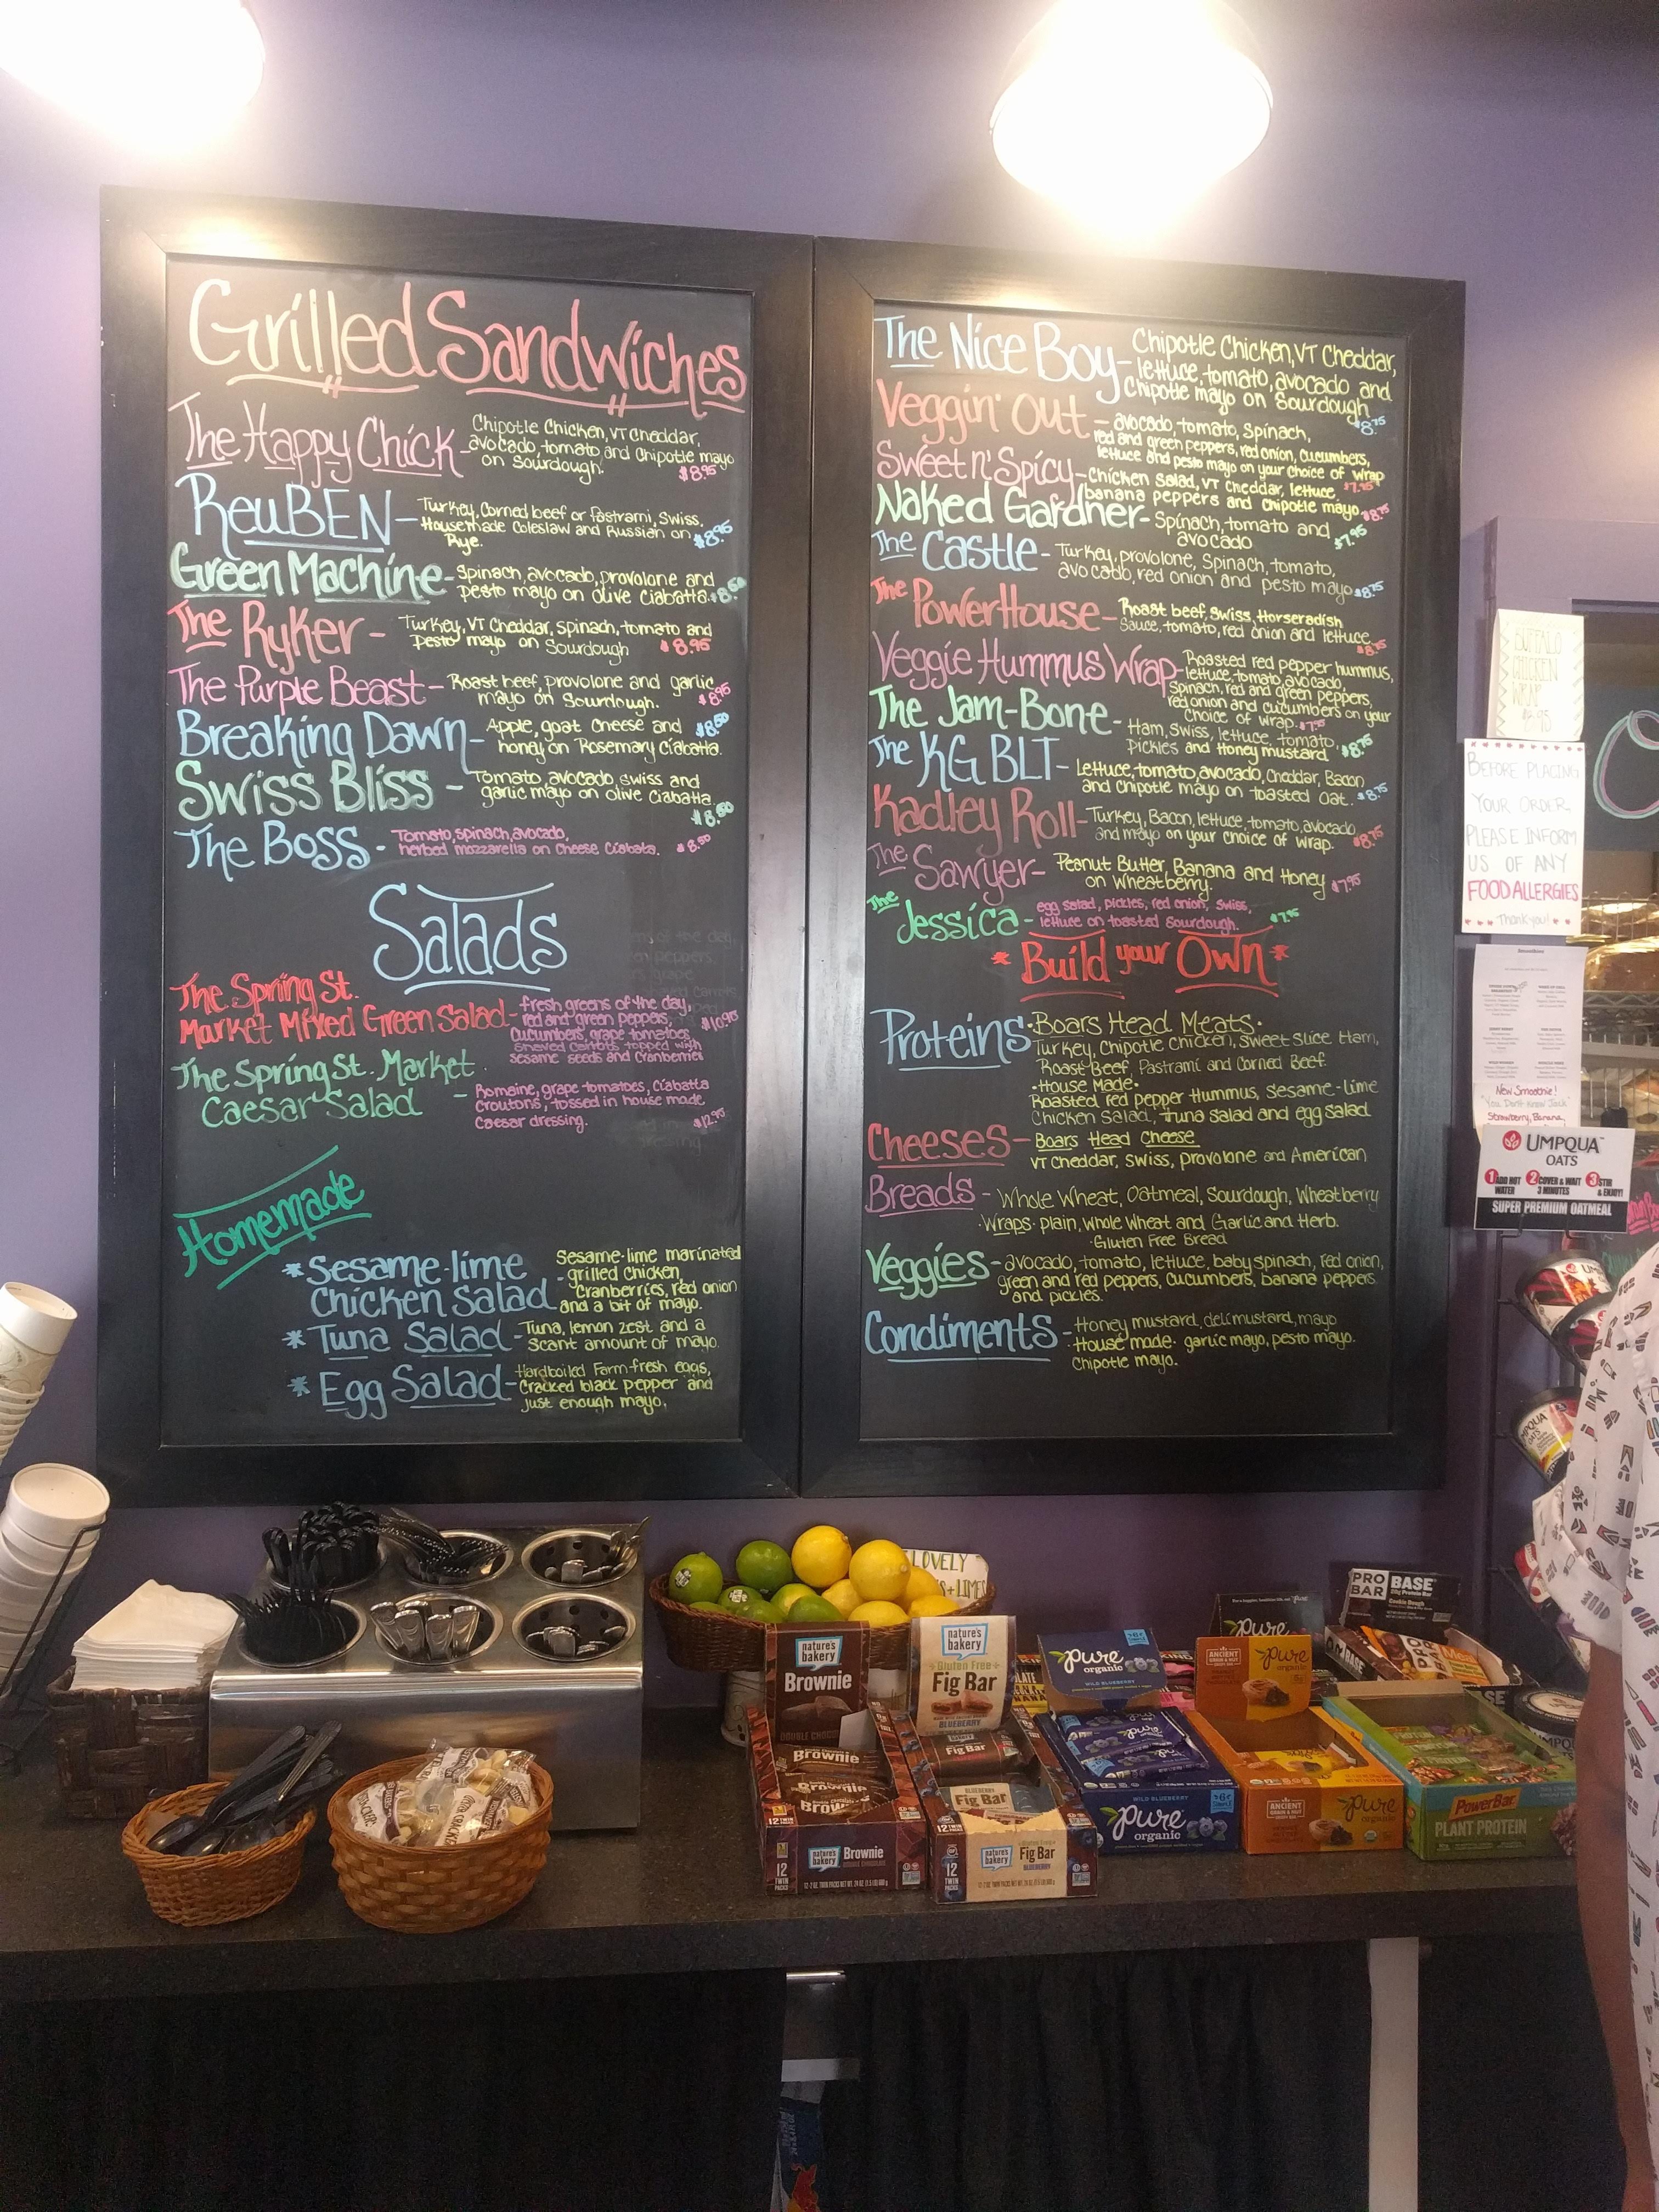 Grilled Sandwiches
The Happy Chick - Chipotle Chicken, VT Cheddar,
avocado, tomato and Chipotle mayo
on Sourdough. $8.95
ReuBEN - Turkey, Corned beef or Pastrami, Swiss.
Housemade Coleslaw and Russian on
Rye. $8.95
Green Machine - Spinach, avocado, provolone and
pesto mayo on olive Ciabatta. $8.50
The Ryker - Turkey, VT Cheddar, spinach, tomato and
Pesto mayo on Sourdough $8.95
The Purple Beast - Roast beef, provolone and garlic
mayo on Sourdough. $8.95
Breaking Dawn - Apple, goat Cheese and $8.50
honey on Rosemary Ciabatta.
Swiss Bliss - Tomato, avocado, swiss and
garlic mayo on olive Ciabatta.
$8.50
The Boss - Tomato, spinach, avocado,
herbed mozzarella on Cheese Ciabata. $8.50
Salads
The Spring St.
Market Mixed Green Salad - fresh greens of the day,
red and green peppers, $10.95
Cucumbers, grape tomatoes,
shaved carrots, topped with
sesame seeds and Cranberries
The Spring St. Market
Caesar Salad - Romaine, grape tomatoes, Ciabatta
Croutons, tossed in house made
Caesar dressing. $12.95
Homemade
* Sesame-lime
Chicken Salad - Sesame-lime marinated
grilled chicken,
Cranberries, red onion
and a bit of mayo.
* Tuna Salad - Tuna, lemon zest and a
Scant amount of mayo.
* Egg Salad - Hardboiled Farm-fresh eggs,
Cracked black pepper and
just enough mayo.
The Nice Boy - Chipotle Chicken, VT Cheddar,
lettuce, tomato, avocado and
Chipotle mayo on Sourdough
$8.75
Veggin' Out - avocado, tomato, Spinach,
red and green peppers, red onion, cucumbers,
lettuce and pesto mayo on your choice of wrap
$7.95
Sweet n' Spicy - Chicken Salad, VT Cheddar, lettuce
banana peppers and chipotle mayo $8.75
Naked Gardner - Spinach, tomato and
avocado $7.95
The Castle - Turkey, provolone, Spinach, tomato,
avocado, red onion and pesto mayo $8.75
The PowerHouse - Roast beef, Swiss, Horseradish
Sauce, tomato, red onion and lettuce
$8.75
Veggie Hummus Wrap - Roasted red pepper hummus,
lettuce, tomato, avocado,
Spinach, red and green peppers,
red onion and cucumbers on your
choice of wrap. $7.95
The Jam-Bone - Ham, Swiss, lettuce, tomato,
Pickles and Honey mustard $8.75
The KG BLT - Lettuce, tomato, avocado, Cheddar, Bacon
and Chipotle mayo on toasted Oat. $8.75
Kadley Roll - Turkey, Bacon, lettuce, tomato, avocado
and mayo on your choice of wrap. $8.75
The Sawyer - Peanut Butter, Banana and Honey
on Wheatberry. $7.95
The Jessica - egg salad, pickles, red onion, swiss,
lettuce on toasted Sourdough. $7.95
* Build your Own *
Proteins · Boars Head Meats ·
Turkey, Chipotle Chicken, Sweet Slice Ham,
Roast Beef, Pastrami and Corned Beef.
· House Made ·
Roasted red pepper Hummus, sesame-lime
Chicken Salad, Tuna Salad and egg salad
Cheeses - Boars Head Cheese
VT Cheddar, Swiss, Provolone and American
Breads - Whole Wheat, Oatmeal, Sourdough, Wheatberry
· Wraps · plain, Whole Wheat and Garlic and Herb.
· Gluten Free Bread
Veggies - avocado, tomato, lettuce, baby spinach, red onion,
green and red peppers, cucumbers, banana peppers
and pickles.
Condiments - Honey mustard, deli mustard, mayo
House made · garlic mayo, pesto mayo.
Chipotle mayo.
BUFFALO
CHICKEN
WRAP
BEFORE PLACING
YOUR ORDER,
PLEASE INFORM
US OF ANY
FOOD ALLERGIES
Thank you!
New Smoothie!
"You Don't Know Jack"
Strawberry, Banana,
UMPQUA
OATS
1 ADD HOT
WATER
2 COVER & WAIT
3 MINUTES
3 STIR
& ENJOY!
SUPER PREMIUM OATMEAL
LOVELY
LIMES
nature's
bakery
Brownie
DOUBLE CHOCOLATE
nature's
bakery
Gluten Free
Fig Bar
BLUEBERRY
Pure
organic
WILD BLUEBERRY
ANCIENT
GRAIN & NUT
Pure
organic
pure
PRO
BAR
BASE
Cookie Dough
Brownie
Fig Bar
BLUEBERRY
Fig Bar
nature's
bakery
Brownie
12
TWIN
PACKS
nature's
bakery
Fig Bar
BLUEBERRY
12
TWIN
PACKS
WILD BLUEBERRY
Pure
organic
ANCIENT
GRAIN & NUT
Pure
organic
PowerBar
PLANT PROTEIN